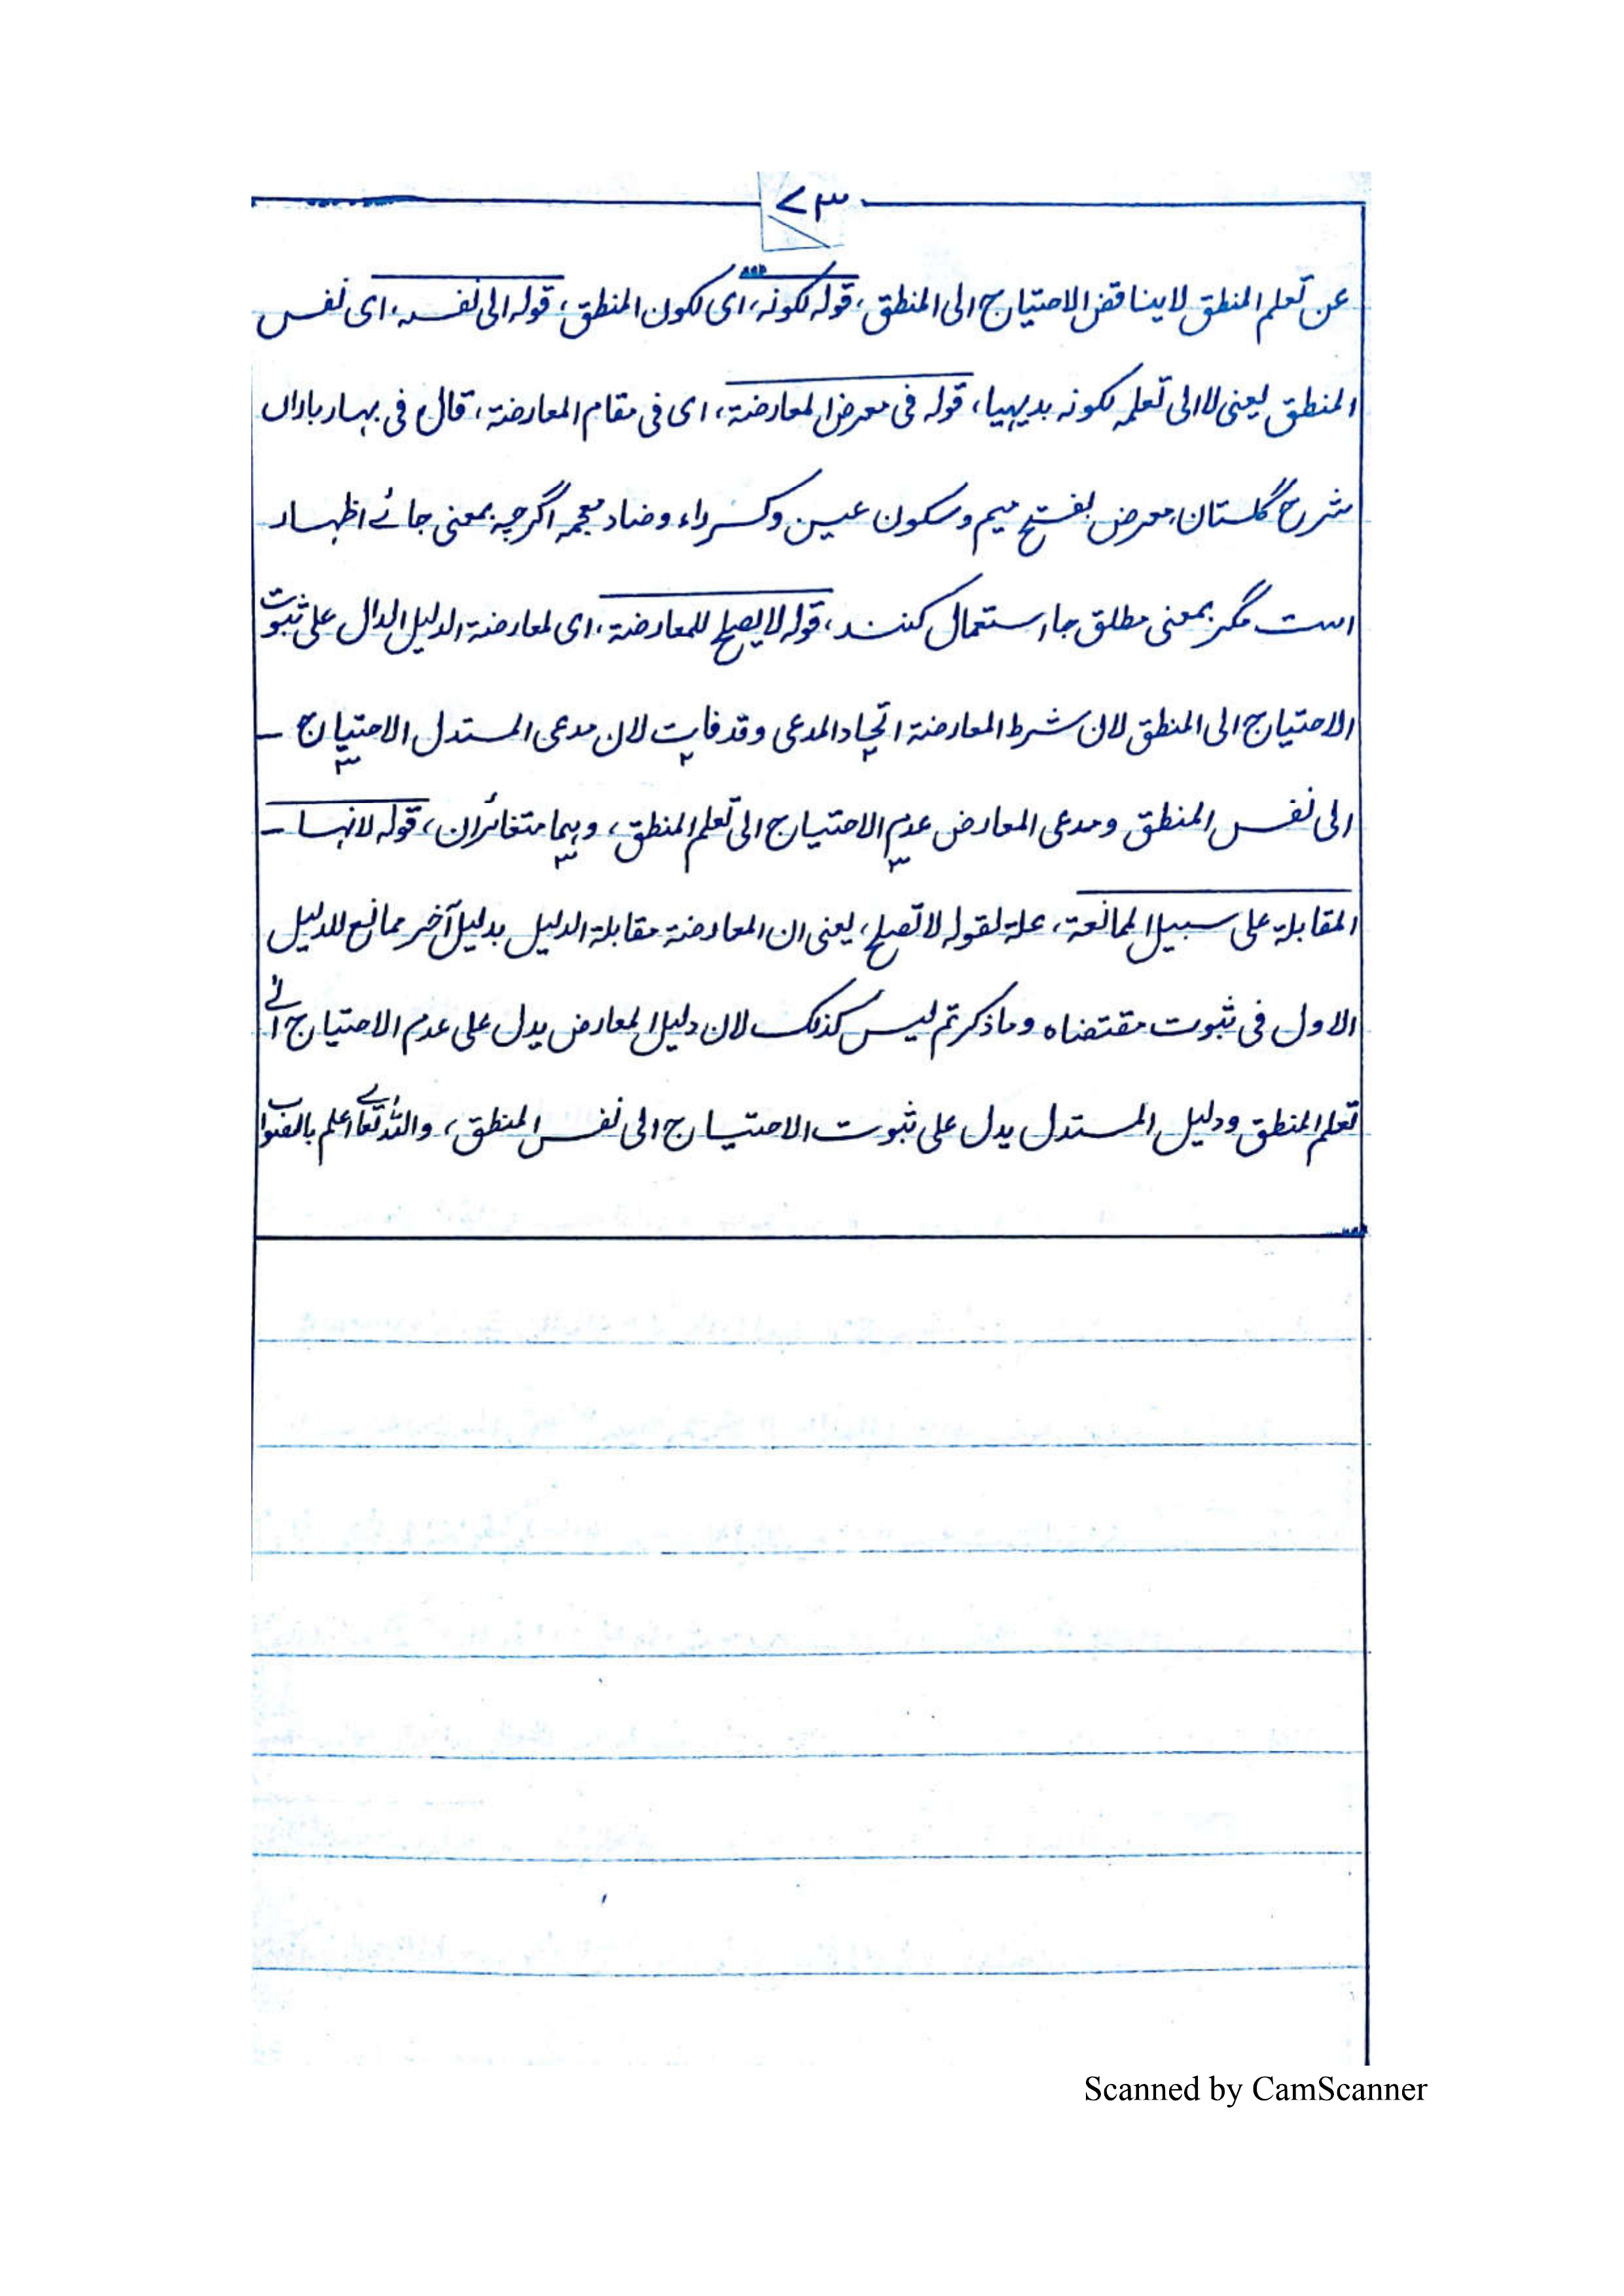 ۷۳
عن تعلم المنطق لا يناقض الاحتياج الى المنطق، قوله لكونه، اى لكون المنطق، قوله الى نفسه، اى نفس
المنطق يعنى لا الى تعلمه لكونه بديهيا، قوله فى معرض المعارضة، اى فى مقام المعارضة، قال فى بہار باراں
شرح گلستان، معرض بفتح ميم وسكون عين وكسر راء وضاد معجمہ اگرچہ بمعنى جائے اظہار
است مگر بمعنى مطلق جا استعمال كنند، قوله لا يصلح للمعارضة، اى لمعارضة الدليل الدال على ثبوت
الاحتياج الى المنطق لان شرط المعارضة اتحاد المدعى وقد فات لان مدعى المستدل الاحتياج -
الى نفس المنطق ومدعى المعارض عدم الاحتياج الى تعلم المنطق، وہما متغائران، قوله لانہا -
المقابلة على سبيل الممانعة، علة لقوله لا تصلح، يعنى ان المعارضة مقابلة الدليل بدليل آخر ممانع للدليل
الاول فى ثبوت مقتضاه وما ذكرتم ليس كذلك لان دليل المعارض يدل على عدم الاحتياج الى
تعلم المنطق ودليل المستدل يدل على ثبوت الاحتياج الى نفس المنطق، والله تعالى اعلم بالصواب
Scanned by CamScanner